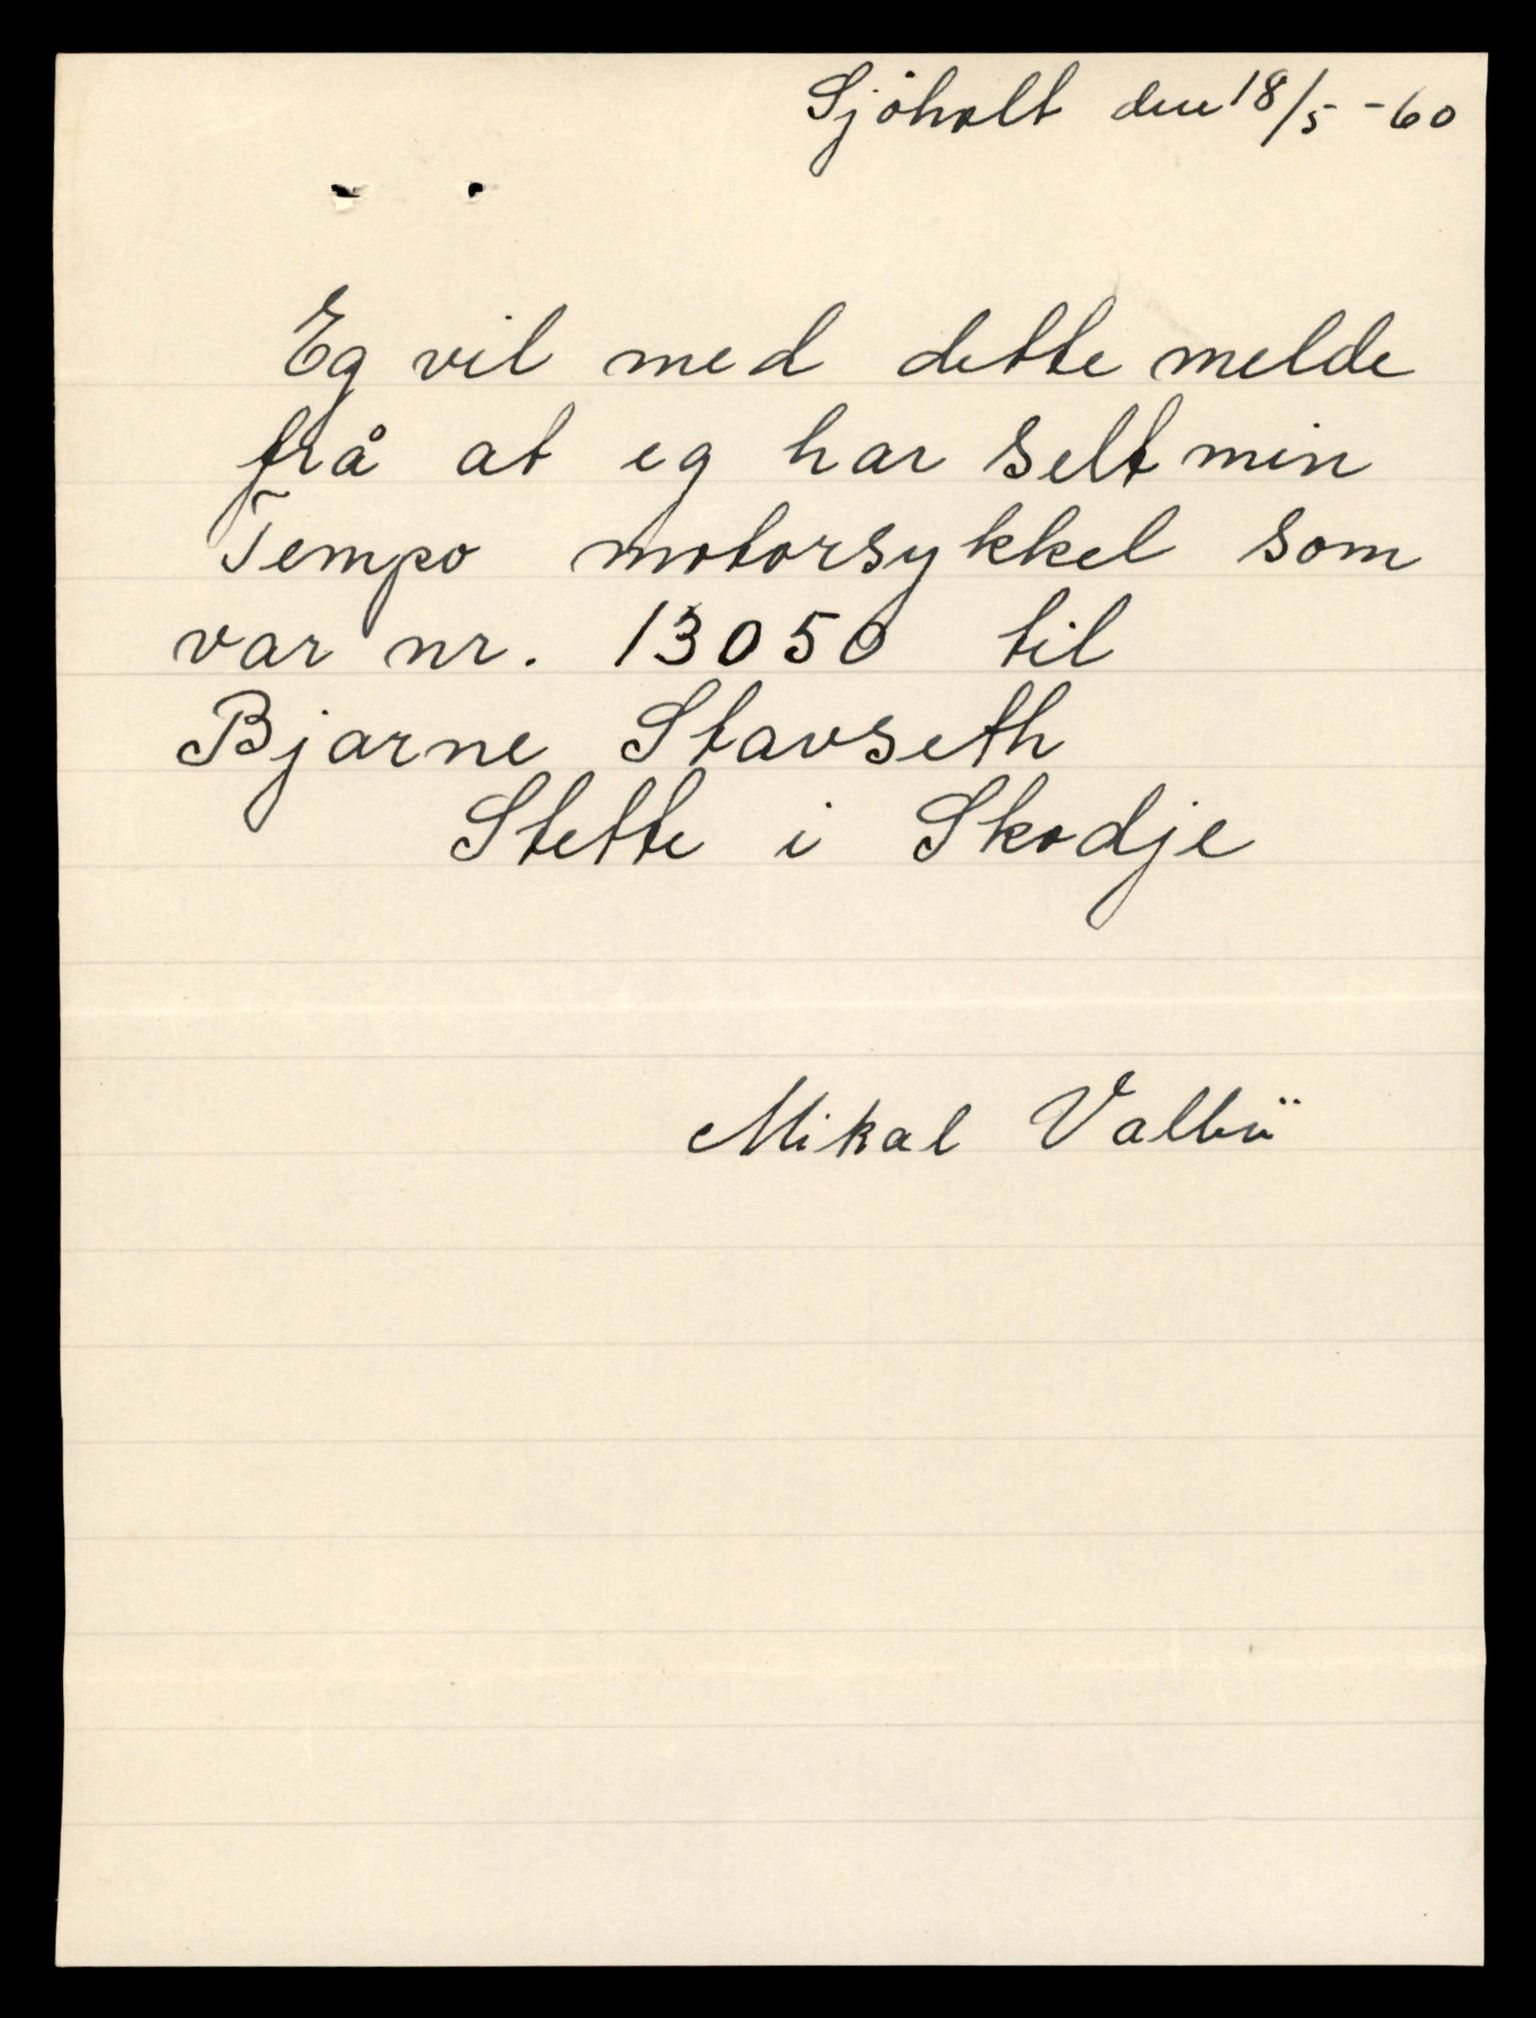 Sjöholt den 18/5 -60
Eg vil med dette melde
frå at eg har selt min
Tempo motorsykkel som
var nr. 13050 til
Bjarne Stavseth
Stette i Skodje
Mikal Valbö